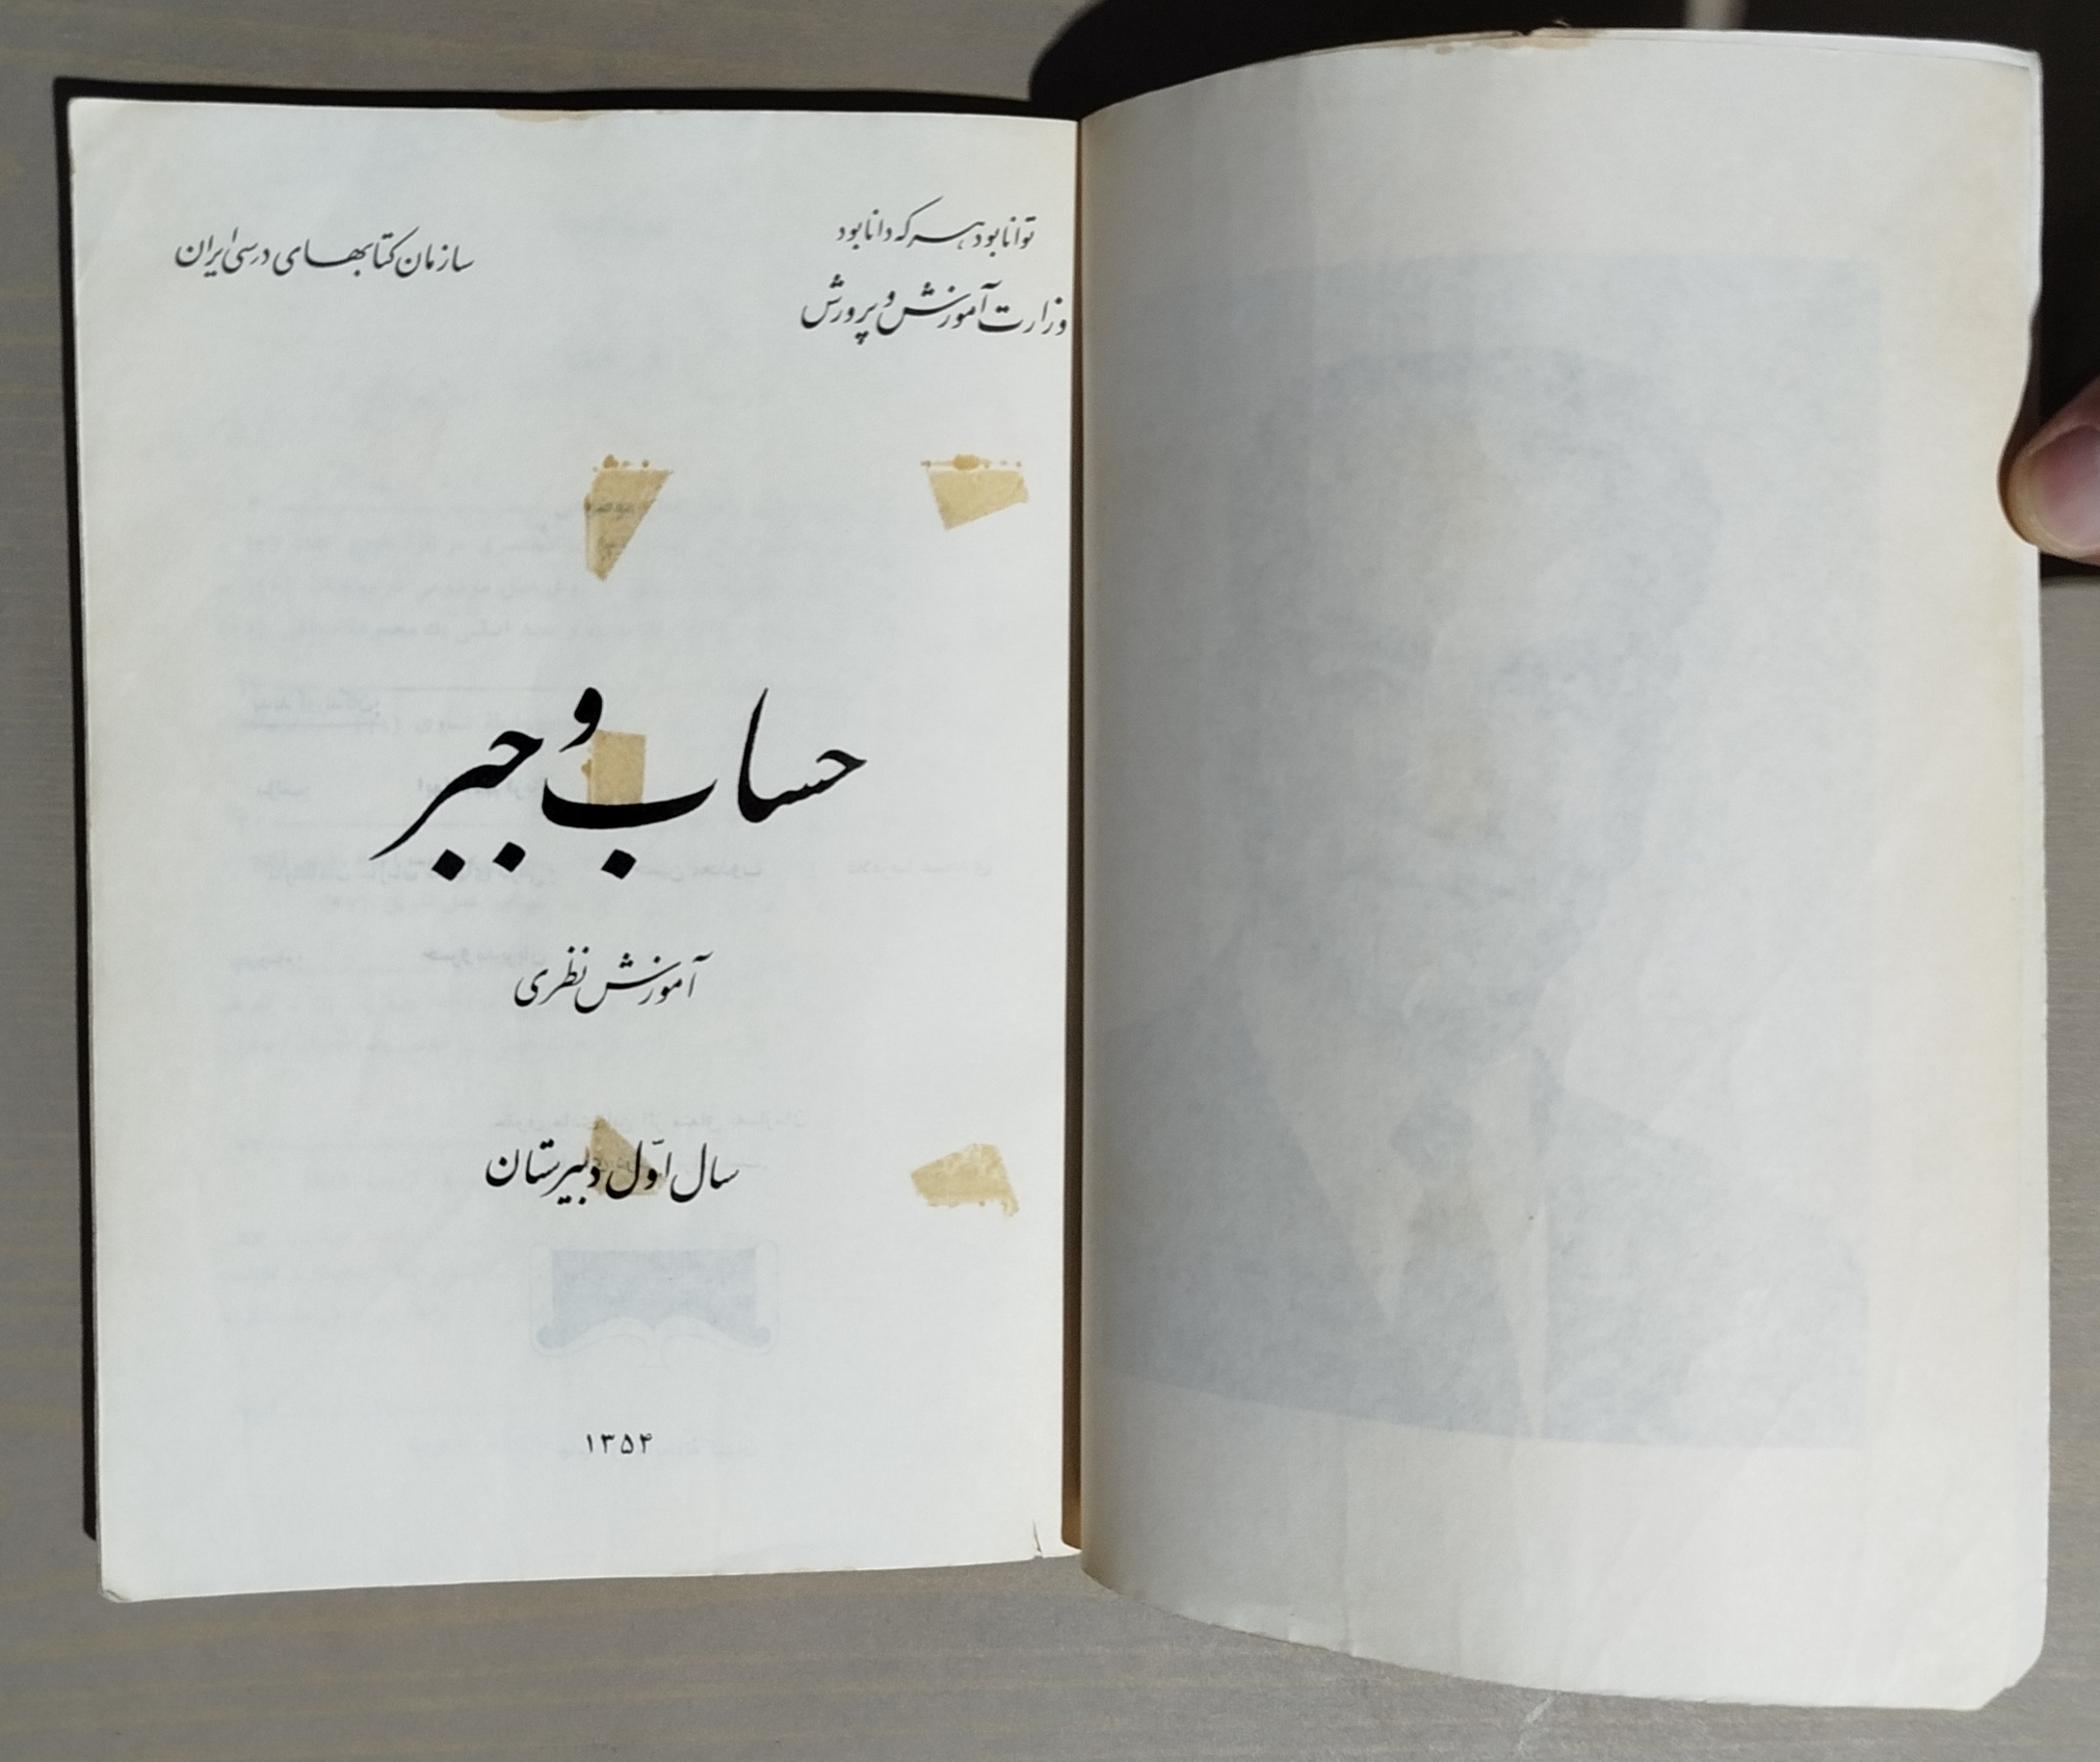 توانا بود هر که دانا بود
وزارت آموزش و پرورش
سازمان کتابهای درسی ایران
حساب و جبر
آموزش نظری
سال اوّل دبیرستان
۱۳۵۴